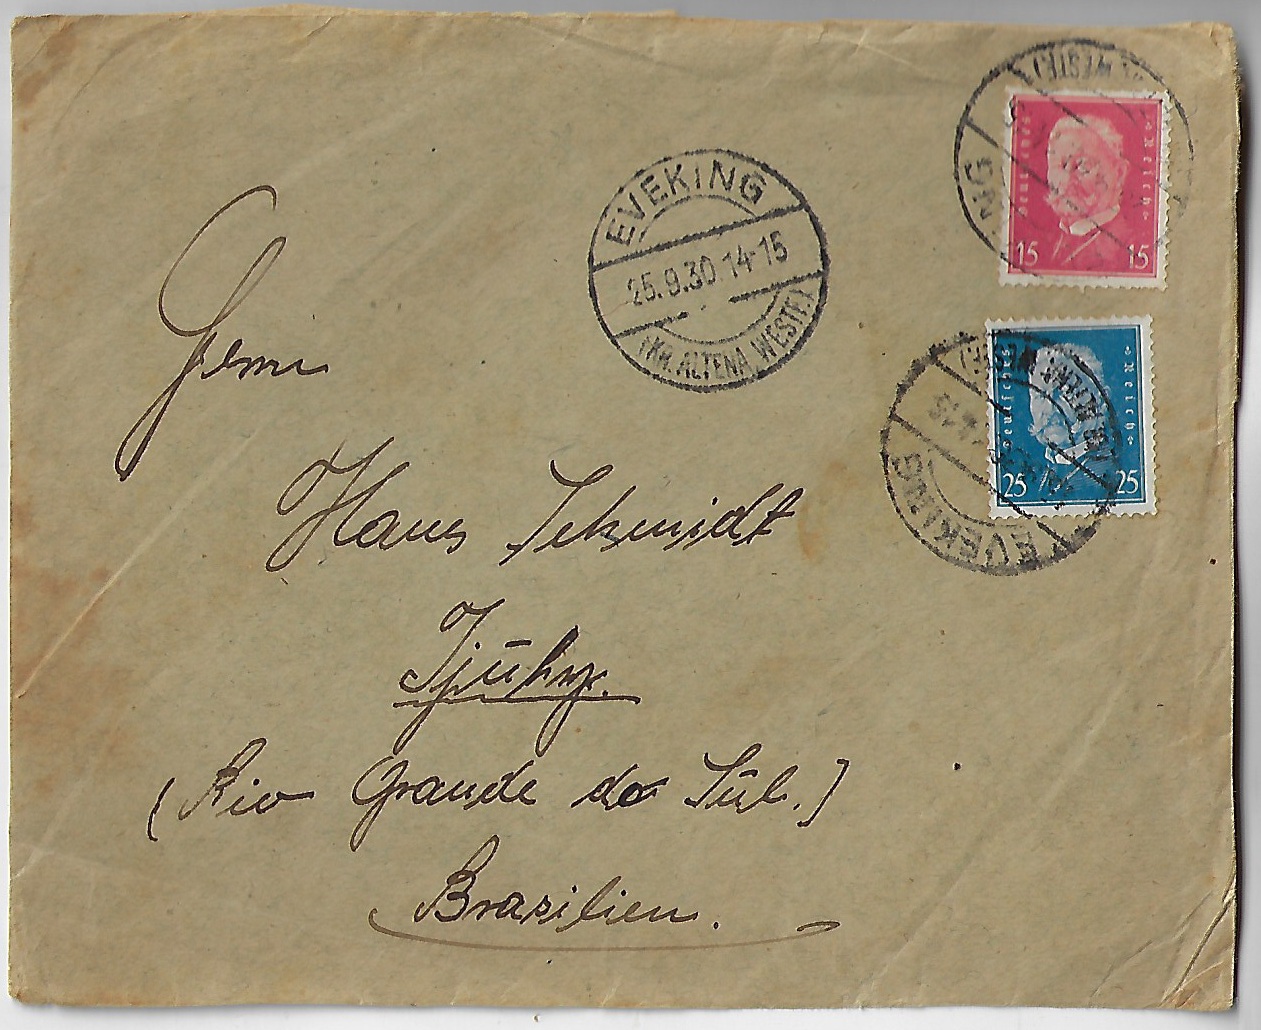 EVEKING
25.9.30 14-15
(KR. ALTENA, WESTF.)
Deutsches Reich
15 15
Deutsches Reich
25 25
EVEKING
Herrn
Hans Schmidt
Ijūhy.
(Rio Grande do Sūl.)
Brasilien.